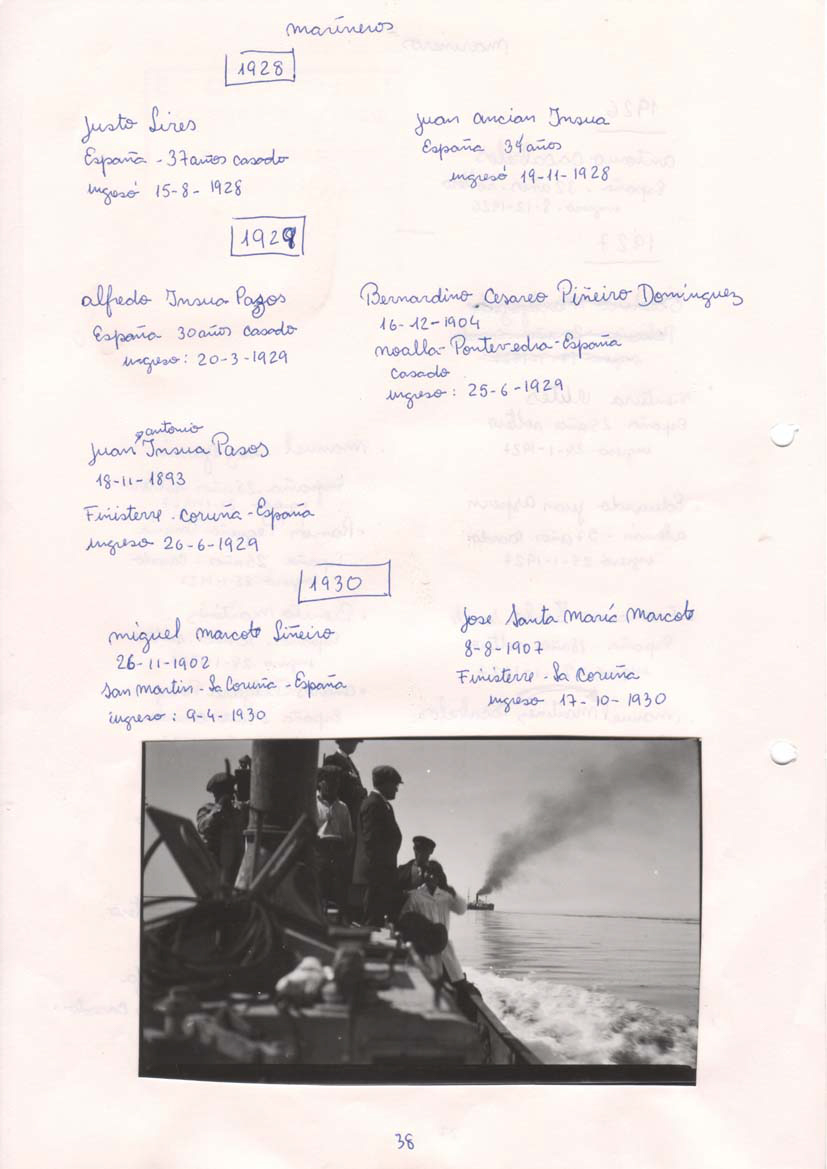 marineros
1928
Justo Lires
España - 37 años casado
ingresó 15-8-1928
Juan Ancian Insua
España 34 años
ingresó 19-11-1928
1929
Alfredo Insua Pazos
España 30 años casado
ingreso: 20-3-1929
Bernardino Cesareo Piñeiro Domínguez
16-12-1904
Noalla-Pontevedra-España
casado
ingreso: 25-6-1929
antonio
Juan Insua Pasos
18-11-1893
Finisterre - Coruña - España
ingreso 26-6-1929
1930
Miguel Marcote Liñeiro
26-11-1902
San Martin - La Coruña - España
ingreso: 9-4-1930
Jose Santa María Marcote
8-8-1907
Finisterre - La Coruña
ingreso 17-10-1930
38